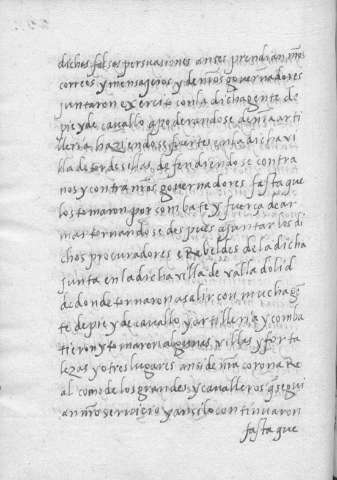 dichas falsas persuasiones an se prendian nr̃os
correos y mensajeros y de nr̃os governadores
juntaron exercito con la dicha gente de
pie y de cavallo apoderandose de nr̃a arti
lleria haziendose fuertes en la dicha vi
lla de tordesillas defendiendose contra
nos y contra nr̃os governadores fasta que
los tomaron por conbate y fuerça de ar
mas tornandose despues a juntar los di
chos procuradores e Rebeldes de la dicha
junta en la dicha villa de valladolid
de donde tornaron a salir con mucha gẽ
te de pie y de cavallo y artilleria y comba
tieron y tomaron algunas villas y forta
lezas y otros lugares ansi de nr̃a corona Re
al como de los grandes y cavalleros q̃ segui
an nr̃o servicio y ansi lo continuaron
fasta que